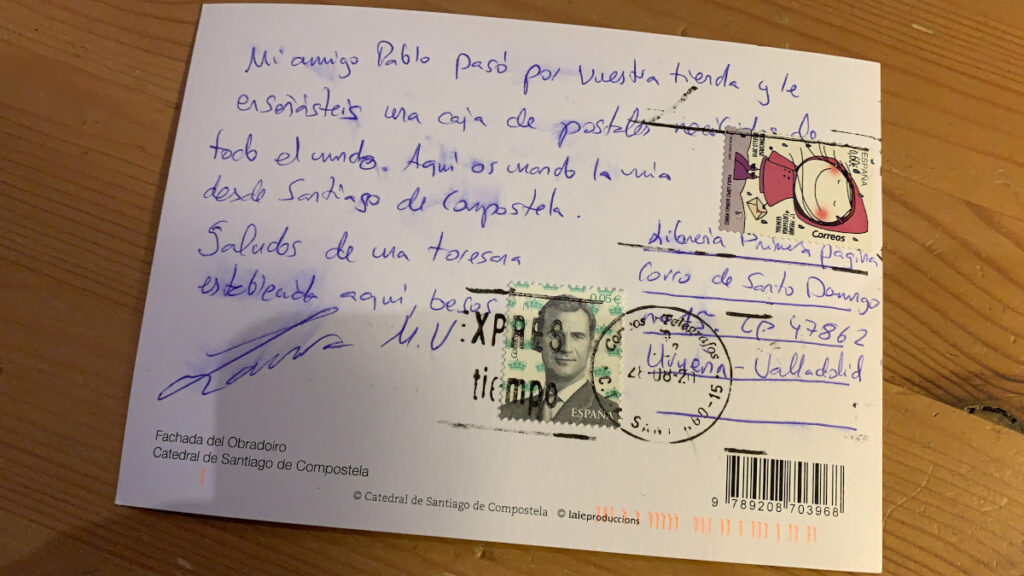 Mi amigo Pablo pasó por vuestra tienda y le
enseñásteis una caja de postales recibidas de
todo el mundo. Aquí os mando la mía
desde Santiago de Compostela.
Saludos de una toresana
establecida aquí, besos
M.V.
ESPAÑA
Correos
Librería Primera página
Corro de Santo Domingo
CP 47862
Urueña - Valladolid
0,05€
Correos
ESPAÑA
XPRES
tiempo
Correos y Telégrafos
Fachada del Obradoiro
Catedral de Santiago de Compostela
© Catedral de Santiago de Compostela © laieproduccions
9 789208 703968